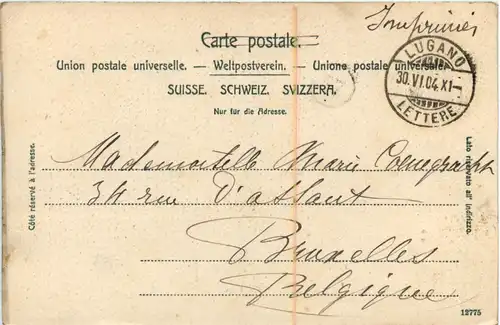 Imprimés
Carte postale.
Union postale universelle. — Weltpostverein. — Unione postale universale.
SUISSE. SCHWEIZ. SVIZZERA.
Nur für die Adresse.
LUGANO
30.VI.04.XI-
LETTERE
Côté réservé à l'adresse.
Lato riservato all' indirizzo.
Mademoiselle Marie
34 rue D'assaut
Bruxelles
Belgique
12775